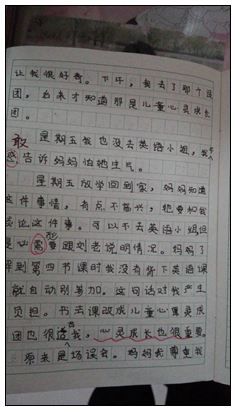 让我很好奇。下午，我去了那个社
团，后来才知道那是儿童心灵成长
团。
敢 星期五我也没去英语小组，我不
告诉妈妈怕她生气。
星期五放学回到家，妈妈知道
这件事情，有点不高兴，她要和我
谈论这件事。可以不去英语小组但
是必需要跟刘老说明情况。妈妈了
解到第四节课时我没有背下英语课
就自动别参加。这句话对我产生
负担。书法课改成儿童心里灵成长
团也很适我，心灵成长也很重要。
原来是场误会。妈妈我